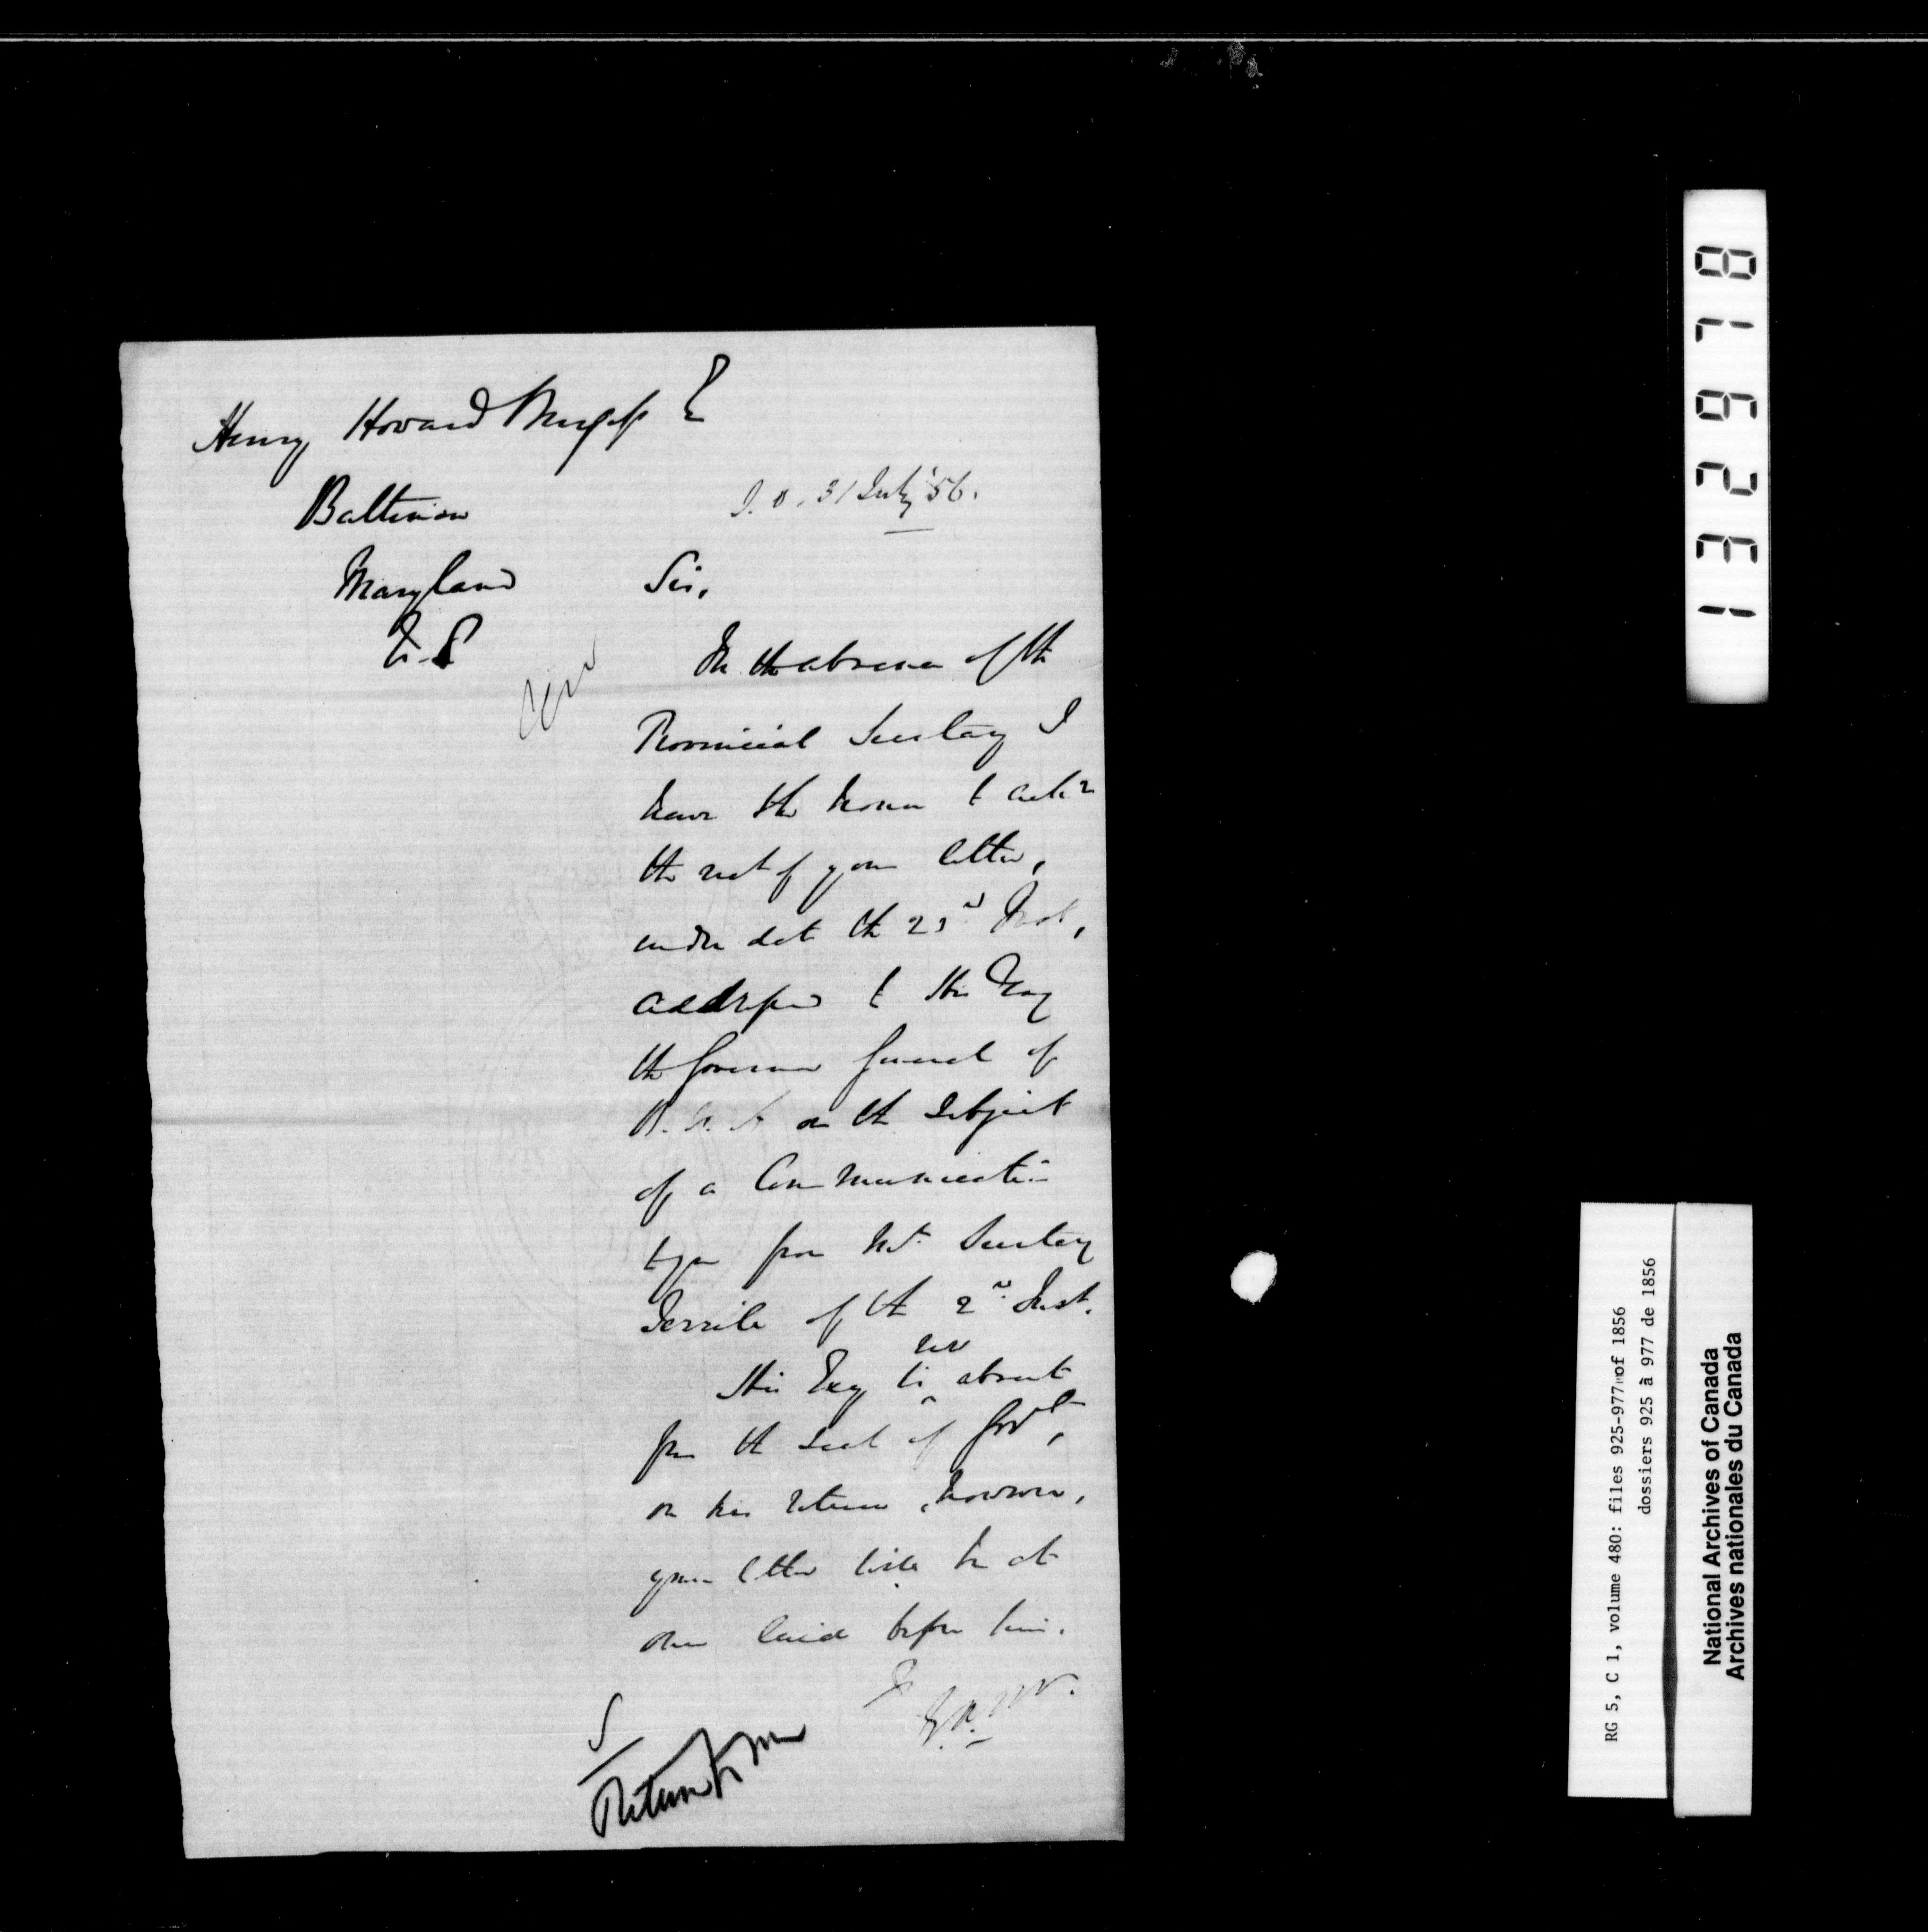 Henry Howard E
Baltimore
Maryland
U.S
31 July '56.
Sir,
In the absence of the
Provincial Secretary I
have the honor t ackn
the rect of your letter,
under date the 23d Inst,
addressed t His Exy
the Governor General of
B. N. A on the subject
of a Communication
to you from Mr. Secretary
of the 2nd Inst.
His Exy is absent
from the Seat of Govt,
on his return, however,
your letter will be at
once laid before him.
Return to me
132978
RG 5, C 1, volume 480: files 925-977 of 1856
dossiers 925 à 977 de 1856
National Archives of Canada
Archives nationales du Canada